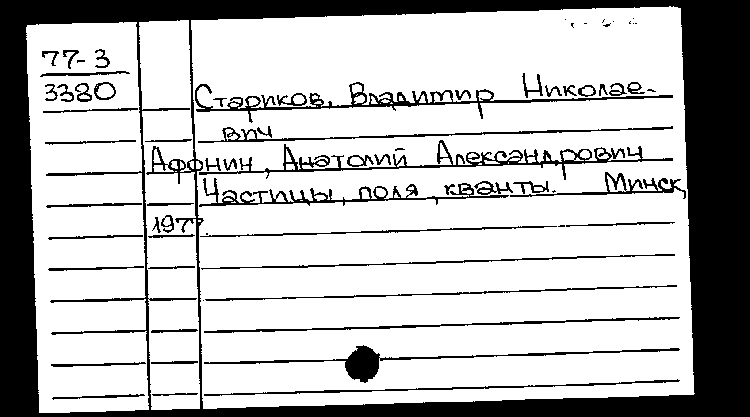 77-3
3380
Стариков, Владимир Николае-
вич
Афонин, Анатолий Александрович
Частицы, поля, кванты. Минск,
1977.